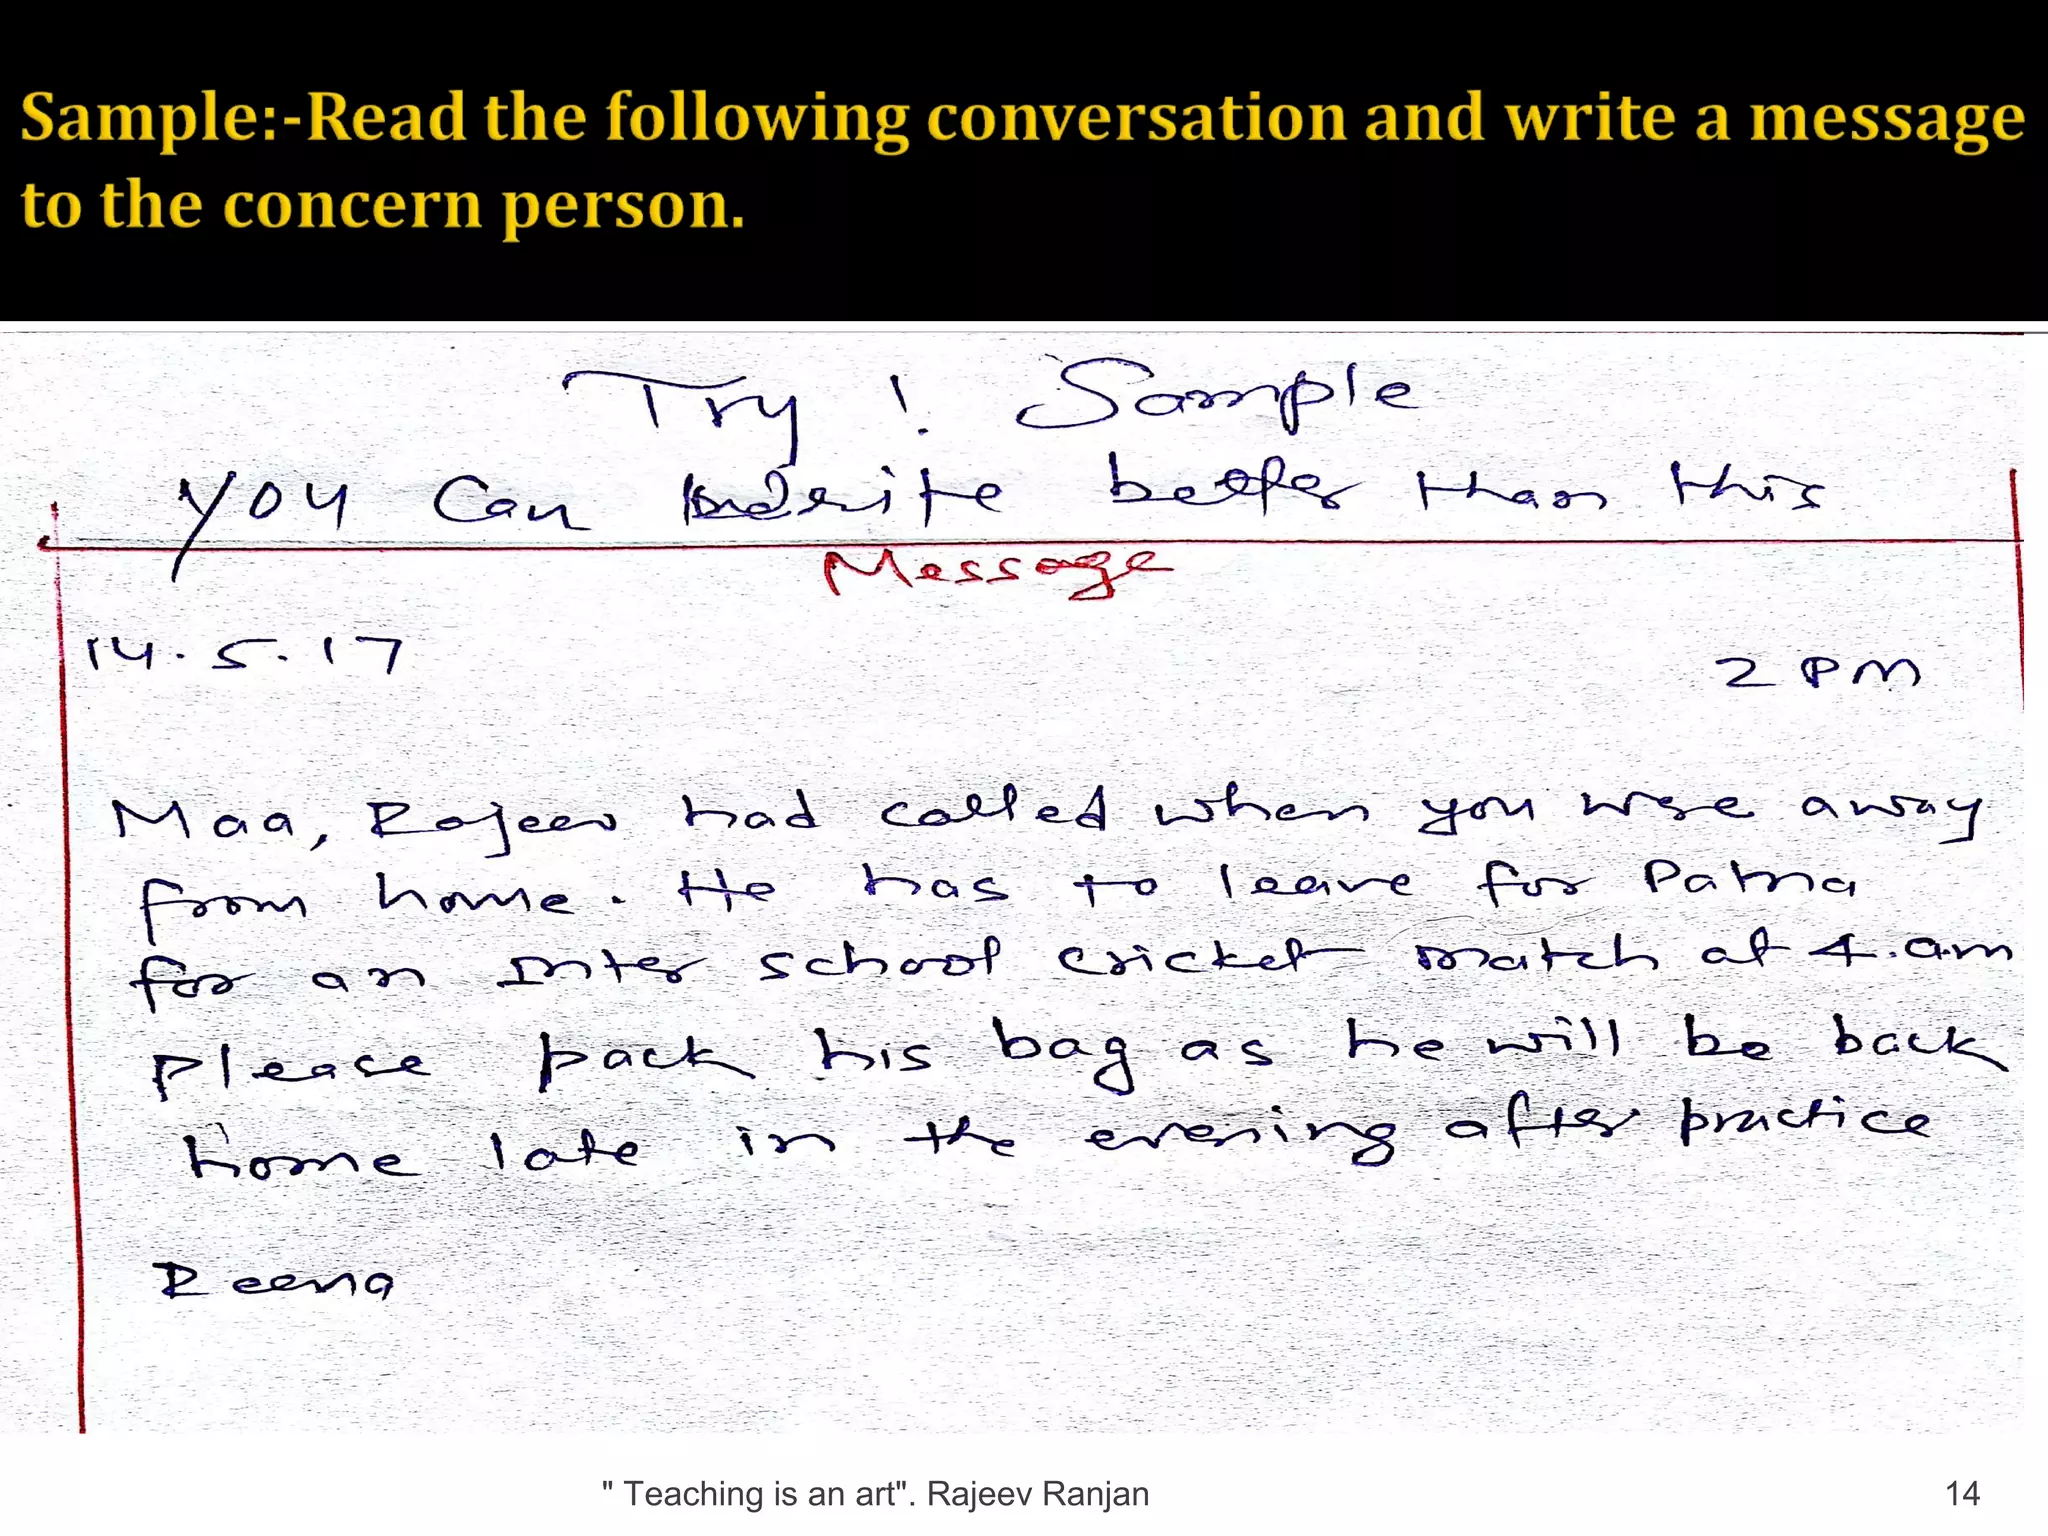 Sample:-Read the following conversation and write a message
to the concern person.
Try ! Sample
You Can write better than this
Message
14.5.17
2 PM
Maa, Rajeev had called when you were away
from home. He has to leave for Patna
for an Inter school cricket match at 4.am
please pack his bag as he will be back
home late in the evening after practice
Reena
" Teaching is an art". Rajeev Ranjan
14